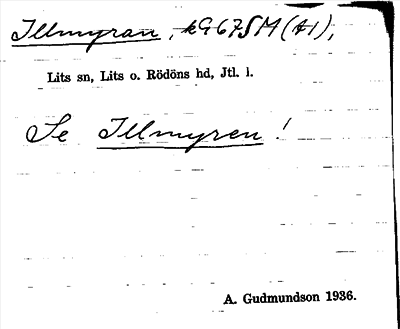 Illmyran, kG675M (A1),
Lits sn, Lits o. Rödöns hd, Jtl. l.
Se Illmyren!
A. Gudmundson 1936.